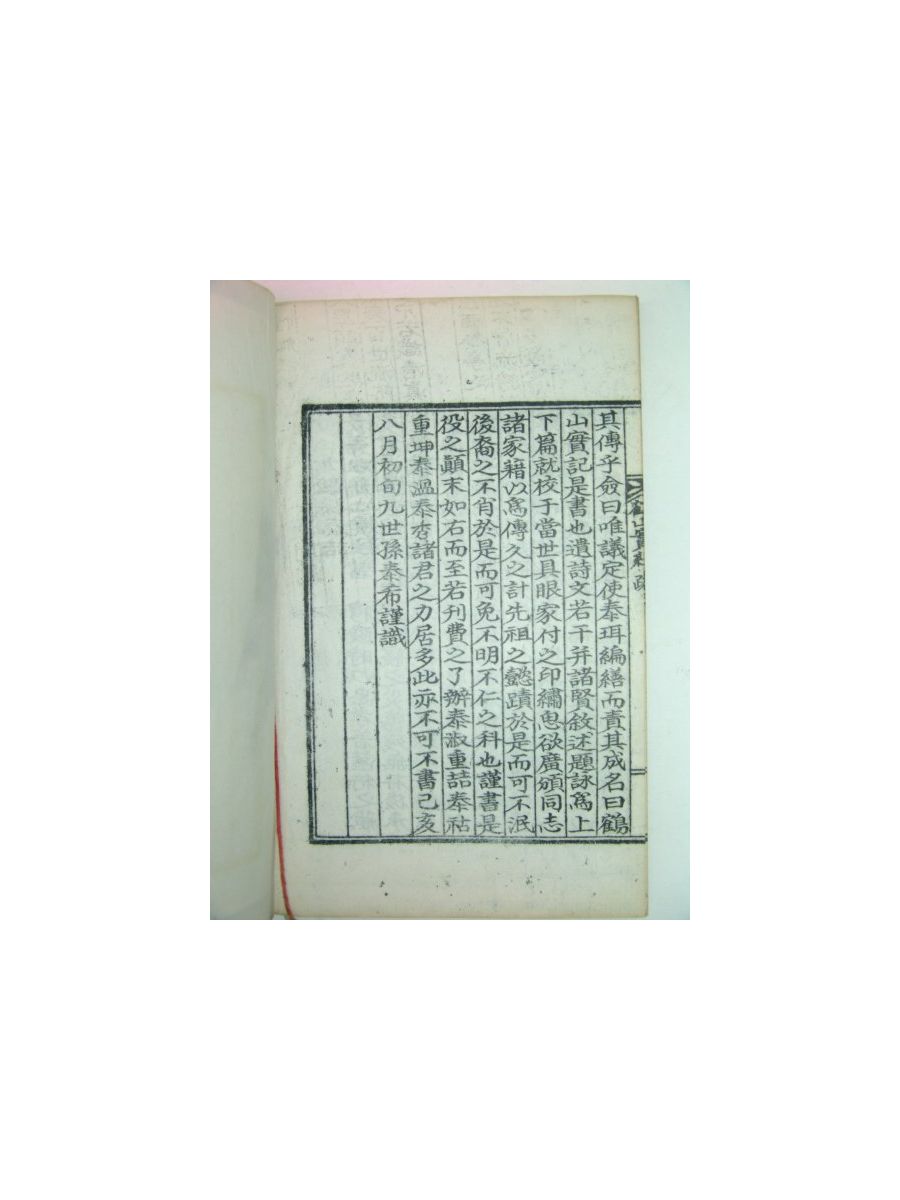 其傳乎僉曰唯議定使泰珥編繕而責其成名曰鶴
山實記是書也遺詩文若干幷諸賢敘述題詠爲上
下篇就校于當世具眼家付之印繡思欲廣頒同志
諸家藉以爲傳久之計先祖之懿蹟於是而可不泯
後裔之不肖於是而可免不明不仁之科也謹書是
役之顚末如右而至若刊費之了辦泰淑重喆泰祜
重坤泰溫泰杏諸君之力居多此亦不可不書己亥
八月初旬九世孫泰希謹識
鶴山實紀